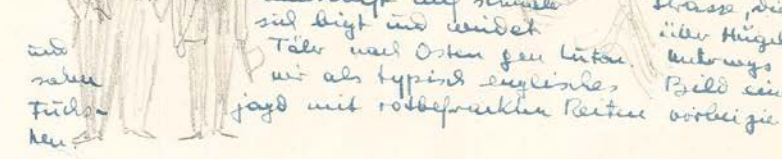 Strasse, die
sich biegt und windet über Hügel
und Täler nach Osten gen Luton. Unterwegs
sahen wir als typisch englisches Bild ein
Fuchs- jagd mit rotbefrackten Reitern vorbeizie
hen.